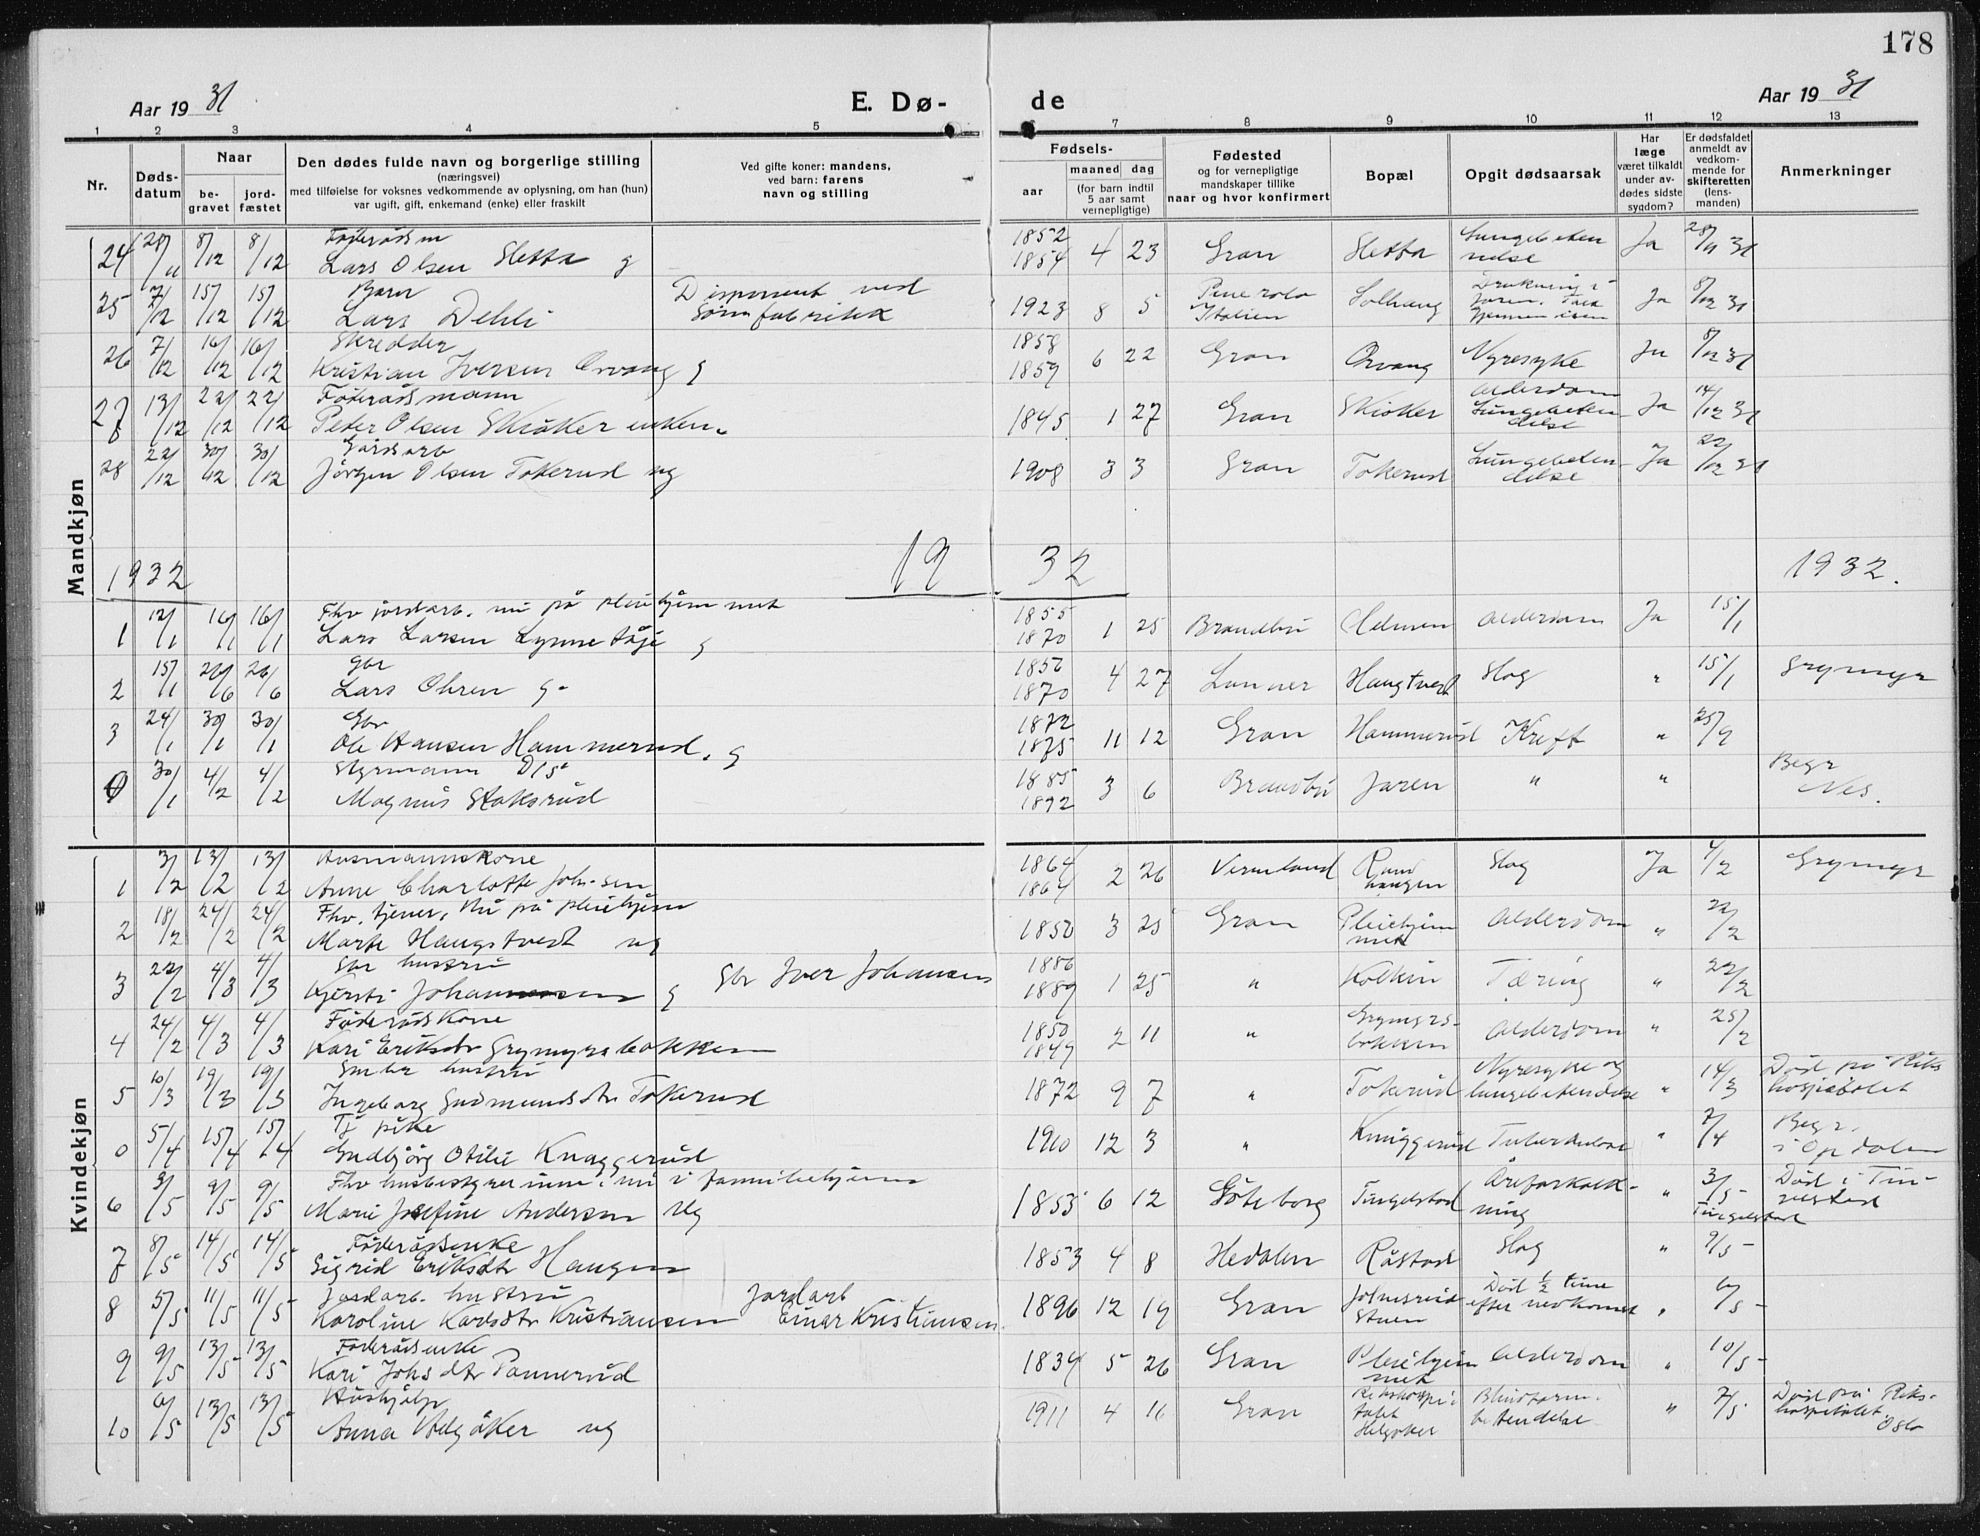 178
Aar 1931
E. Dø-
de
Aar 1931
1 2 3 4 5 6 7 8 9 10 11 12 13
Nr.
Døds-
datum
Naar
be-
gravet
jord-
fæstet
Den dødes fulde navn og borgerlige stilling
(næringsvei)
med tilføielse for voksnes vedkommende av oplysning, om han (hun)
var ugift, gift, enkemand (enke) eller fraskilt
Ved gifte koner: mandens,
ved barn: farens
navn og stilling
Fødsels-
aar
maaned dag
(for barn indtil
5 aar samt
vernepligtige)
Fødested
og for vernepligtige
mandskaper tillike
naar og hvor konfirmert
Bopæl
Opgit dødsaarsak
Har
læge
været tilkaldt
under av-
dødes sidste
sygdom?
Er dødsfaldet
anmeldt av
vedkom-
mende for
skifteretten
(lens-
manden)
Anmerkninger
Mandkjøn
24 28/11 8/12 8/12 Føderådsm
Lars Olsen Sletta g 1852
1854 4 23 Gran Sletta Lungebeten
nelse Ja 28/11 31
25 7/12 15/12 15/12 Barn
Lars Dehli Disponent ved
1923 8 5 Italien Solhaug Drukning i
Jaren. Ja 8/12 31
26 7/12 16/12 16/12 Skredder
Kristian Iversen Orvang g 1858
1859 6 22 Gran Orvang Nyresyke Ja 8/12 31
27 13/12 22/12 22/12 Føderådsmann
Peder Olsen Skiaker enkem. 1845 1 27 Gran Skiaker Alderdom
Lungebeten-
delse Ja 14/12 31
28 22/12 30/12 30/12 Gårdsarb
Jörgen Olsen Tokerud ug 1908 3 3 Gran Tokerud Lungebeten-
delse Ja 22/12 31
1932 19 32 1932.
1 12/1 16/1 16/1 Fhv jordarb. nu på pleiehjemmet
Lars Larsen g 1855
1870 1 25 Brandbu Helmen Alderdom Ja 15/1
2 15/1 26/6 26/6 Gbr
Lars Ohren g. 1856
1870 4 27 Lunner Haugtvedt Slag " 15/1 Grymyr
3 24/1 30/1 30/1 Gbr
Ole Hansen Hammerud. g 1872
1875 11 12 Gran Hammerud Kreft " 25/9
0 30/1 4/2 4/2 Styrmann D/S
Magnus Staksrud 1885
1892 3 6 Brandbu Jaren " " Begr
Nes.
Kvindekjøn
1 3/2 13/2 13/2 Husmannskone
Anne Charlotte Joh-sen 1864
1864 2 26 Vermland Rand
haugen Slag Ja 4/2 Grymyr
2 18/2 24/2 24/2 Fhv. tjener, Nu på pleiehjem
Marte Haugstvedt ug 1850 3 25 Gran Pleiehjem
met Alderdom " 22/2
3 22/2 4/3 4/3 Gbr hustru
Kjersti Johannesen g Gbr Iver Johansen 1886
1889 1 25 " Kolkin Tæring " 22/2
4 24/2 4/3 4/3 Føderådskone
Kari Eriksdtr Grymyrsbakken 1850
1849 2 11 " Grymyrs-
bakken Alderdom " 25/2
5 10/3 19/3 19/3 Gmbr hustru
Ingeborg Gudmundsdtr Tokerud 1872 9 7 " Tokerud Nyresyke og
lungebetendelse " 14/3 Død på Riks
hospitalet
0 5/4 15/4 15/4 Tj pike
Gudbjörg Otilie Knaggerud 1910 12 3 " Knaggerud Tuberkulose " 7/4 Begr.
i Opdalen
6 3/5 9/5 9/5 Fhv husbestyrerinne, nu i familiehjem
Marie Josefine Andersen Ug 1853 6 12 Göteborg Tingelstad Åreforkalk-
ning " 3/5- Død i Tin-
gelstad
Tingelstad
7 8/5 14/5 14/5 Føderådsenke
Sigrid Eriksdtr Haugen 1853 4 8 Hedalen Råstad Slag " 9/5-
8 5/5 11/5 11/5 Jordarb. hustru
Karoline Karlsdtr Kristiansen Jordarb
Einar Kristiansen. 1896 12 19 Gran Johnsrud
stuen Død 1/2 time
efter nedkomst " 6/5-
9 9/5 13/5 13/5 Føderådsenke
Kari Johsdtr Pannerud 1834 5 26 Gran Pleiehjem
met Alderdom " 10/5-
10 6/5 13/5 13/5 Hushjelp
Anna Helgåker ug 1911 4 16 Gran Rikshospi
talet
Helgaker Blindtarm-
betendelse " 7/5 Død på Riks-
hospitalet.
Oslo